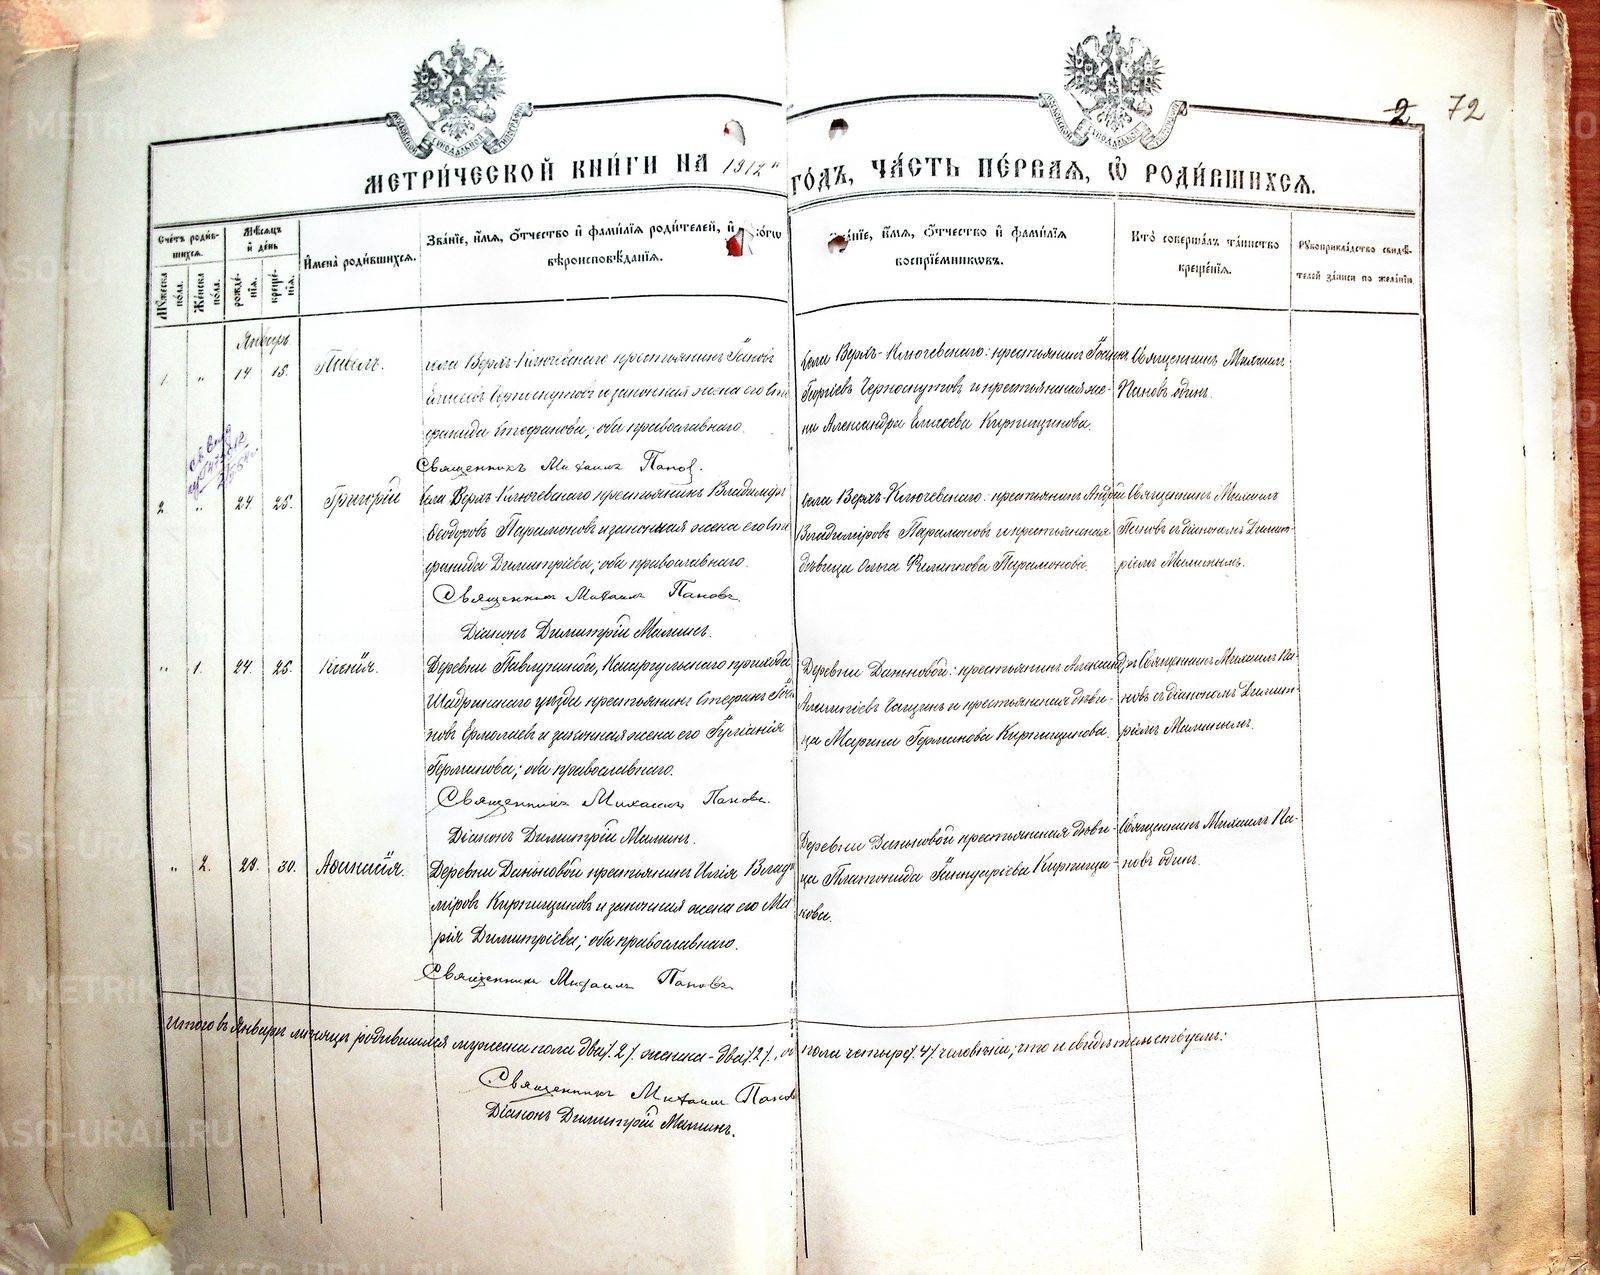 2 72
МЕТРИ́ЧЕСКОЙ КНИ́ГИ НА 1912й ГО́ДЪ, ЧА́СТЬ ПЕ́РВАЯ, Ѡ҆ РОДИ́ВШИХСЯ.
Сче́тъ роди́в-
шихся.
Му́жеска по́ла.
Же́нска по́ла.
Мѣ́сяцъ
и҆ де́нь
рожде́-
нїя.
креще́-
нїя.
И҆мена̀ роди́вшихся.
Зва́нїе, и҆́мя, ѻ҆́тчество и҆ фами́лїя роди́телей, и҆
вѣроисповѣ́данїя.
и҆́мя, ѻ҆́тчество и҆ фами́лїя
воспрїе́мниковъ.
Кто̀ соверша́лъ та́инство
креще́нїя.
Рꙋкоприкла́дство свидѣ́-
телей за́писи по жела́нїю
Январь
1. " 14 15. Павелъ.
села Верхъ-Ключевскаго крестьянинъ Іаковъ
и законная жена его Сте-
фанида Стефанова, оба православнаго.
Священникъ Михаилъ Пановъ.
Села Верхъ-Ключевскаго: крестьянинъ Іоаннъ
Георгіевъ Черноскутовъ и крестьянская же-
на Александра Елисеева Кирпищикова.
Священникъ Михаилъ
Пановъ одинъ.
2. " 24. 25. Григорій
Села Верхъ-Ключевскаго крестьянинъ Владимиръ
Ѳеодоровъ Парамоновъ и законная жена его Сте-
фанида Димитріева; оба православнаго.
Священникъ Михаилъ Пановъ
Діаконъ Димитрій Малинъ.
села Верхъ-Ключевскаго: крестьянинъ Андрей
Владиміровъ Парамоновъ и крестьянская
дѣвица Ольга Филиппова Парамонова.
Священникъ Михаилъ
Пановъ съ діакономъ Димит-
ріемъ Малинымъ.
" 1. 24. 25. Ксенія.
Деревни Павлушиной, прихода
Шадринскаго уѣзда крестьянинъ Стефанъ Іоа-
новъ Ермолаевъ и законная жена его Іуліанія
Германова; оба православнаго.
Священникъ Михаилъ Пановъ.
Діаконъ Димитрій Малинъ.
Деревни Даньковой: крестьянинъ Александръ
и крестьянская дѣви-
ца Марина Германова Кирпищикова.
Священникъ Михаилъ Па-
новъ съ діакономъ Димит-
ріемъ Малинымъ.
" 2. 29. 30. Аѳанасія.
Деревни Даньковой крестьянинъ Илія Влади-
міровъ Кирпищиковъ и законная жена его Ма-
рія Димитріева; оба православнаго.
Священникъ Михаилъ Пановъ
Деревни Даньковой крестьянская дѣви-
ца Платонида Іаннуаріева Кирпищи-
кова.
Священникъ Михаилъ Па-
новъ одинъ.
Итого въ Январѣ мѣсяцѣ родившихся мужска пола два /2/. женска - два /2/, об. пола четыре /4/ человѣка, что и свидѣтельствуемъ:
Священникъ Михаилъ Пановъ
Діаконъ Димитрій Малинъ.